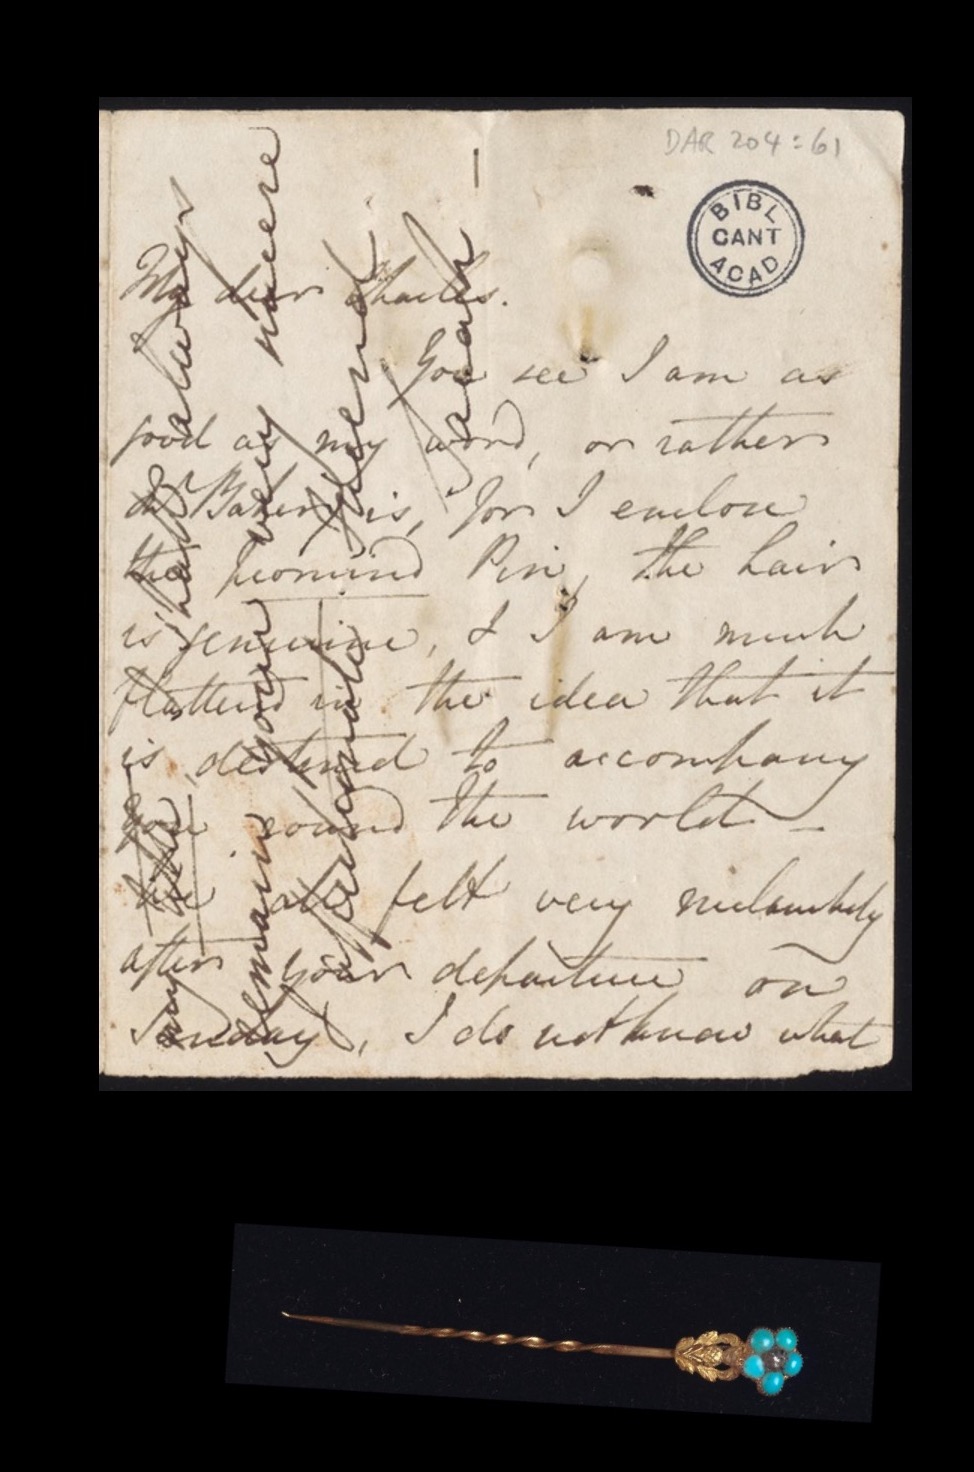 DAR 204:61
BIBL
CANT
ACAD
1
My dear Charles.
You see I am as
good as my word, or rather
is, for I enclose
the promised Pin, the hair
is genuine, & I am much
flattered in the idea that it
is destined to accompany
you round the world —
We all felt very melancholy
after your departure on
Sunday, I do not know what
my life shall always
remain your very sincere
& affectionate friend
Sarah